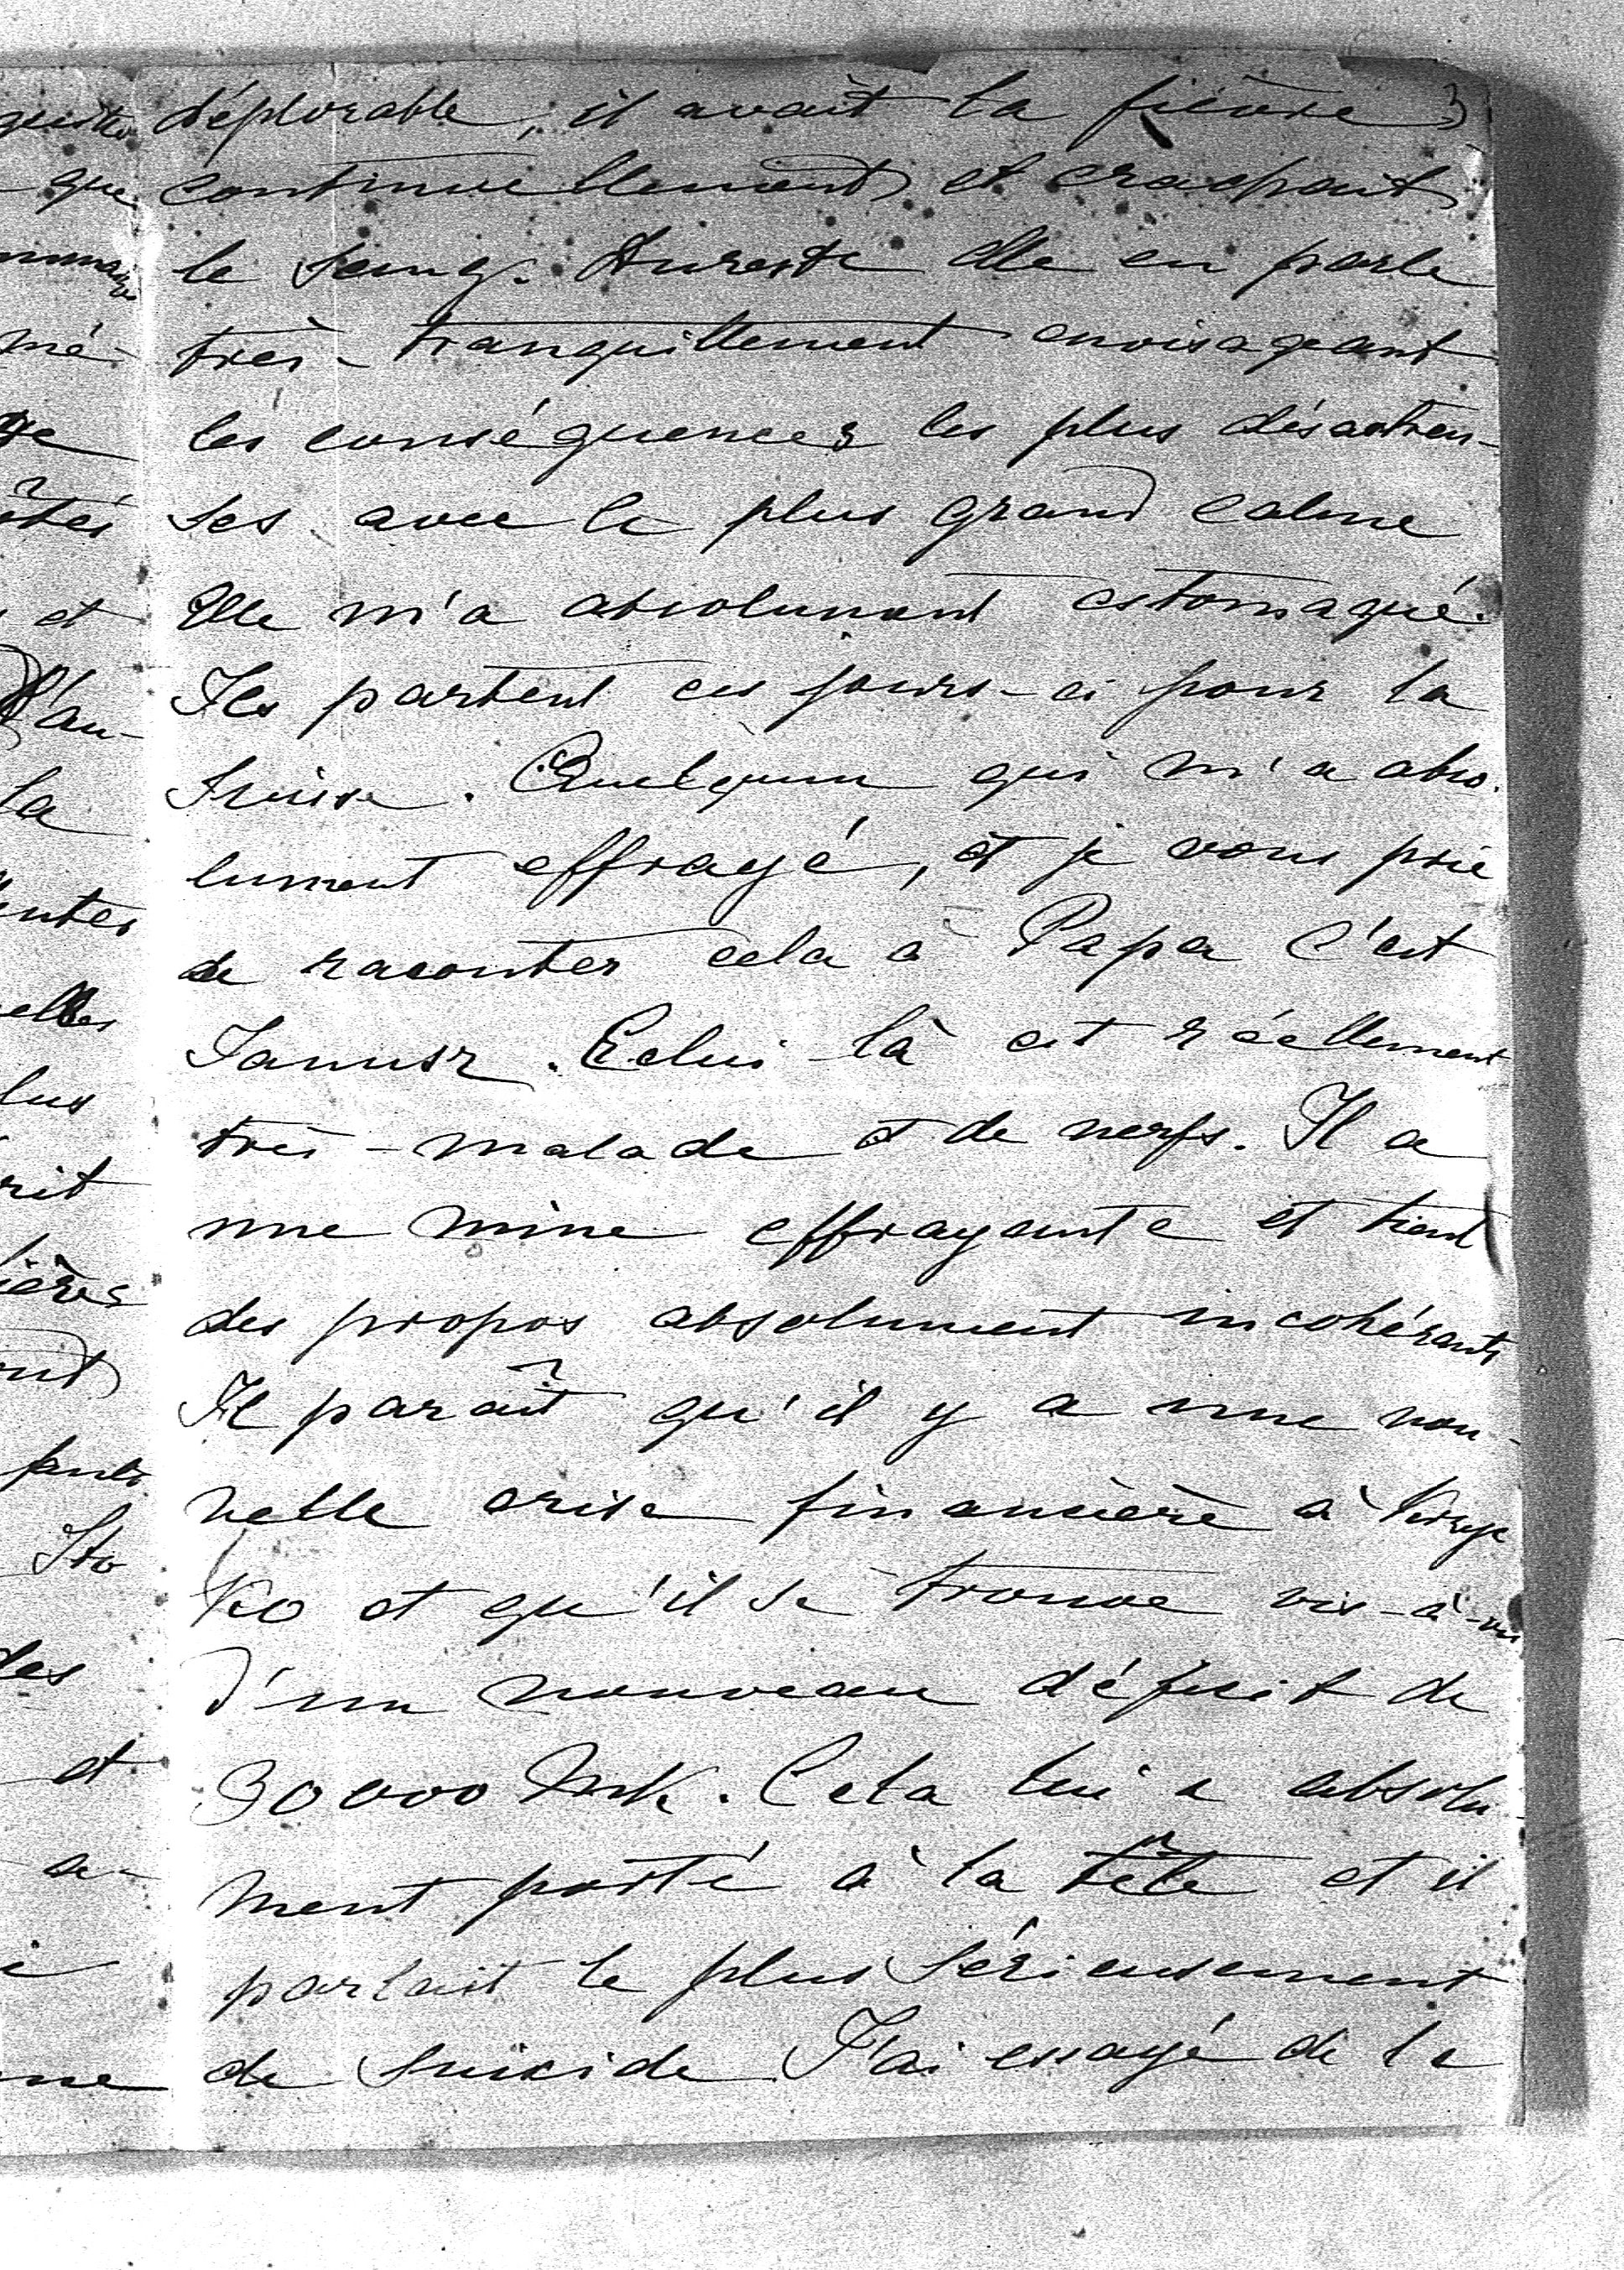 déplorable, il avait la fièvre 3
continuellement et crachait
le sang. Dureste elle en parle
très-tranquillement envisageant
les conséquences les plus désastreu-
ses avec le plus grand calme
Elle m'a absolument estomaqué.
Ils partent ces jours-ci pour la
Suisse. Quelqun qui m'a abso-
lument effrayé, et je vous prie
de raconter cela à Papa c'est
Janusz. Celui-là est réellement
très-malade et de nerfs. Il a
une mine effrayante et tient
des propos absolument incohérants
Il paraît qu'il y a une nou-
velle crise financière à
ko et qu'il se trouve vis-à-vis
d'un nouveau déficit de
30000 Mk. Cela lui a absolu-
ment porté à la tête et il
parlait le plus sérieusement
de suicide J'ai essayé de le